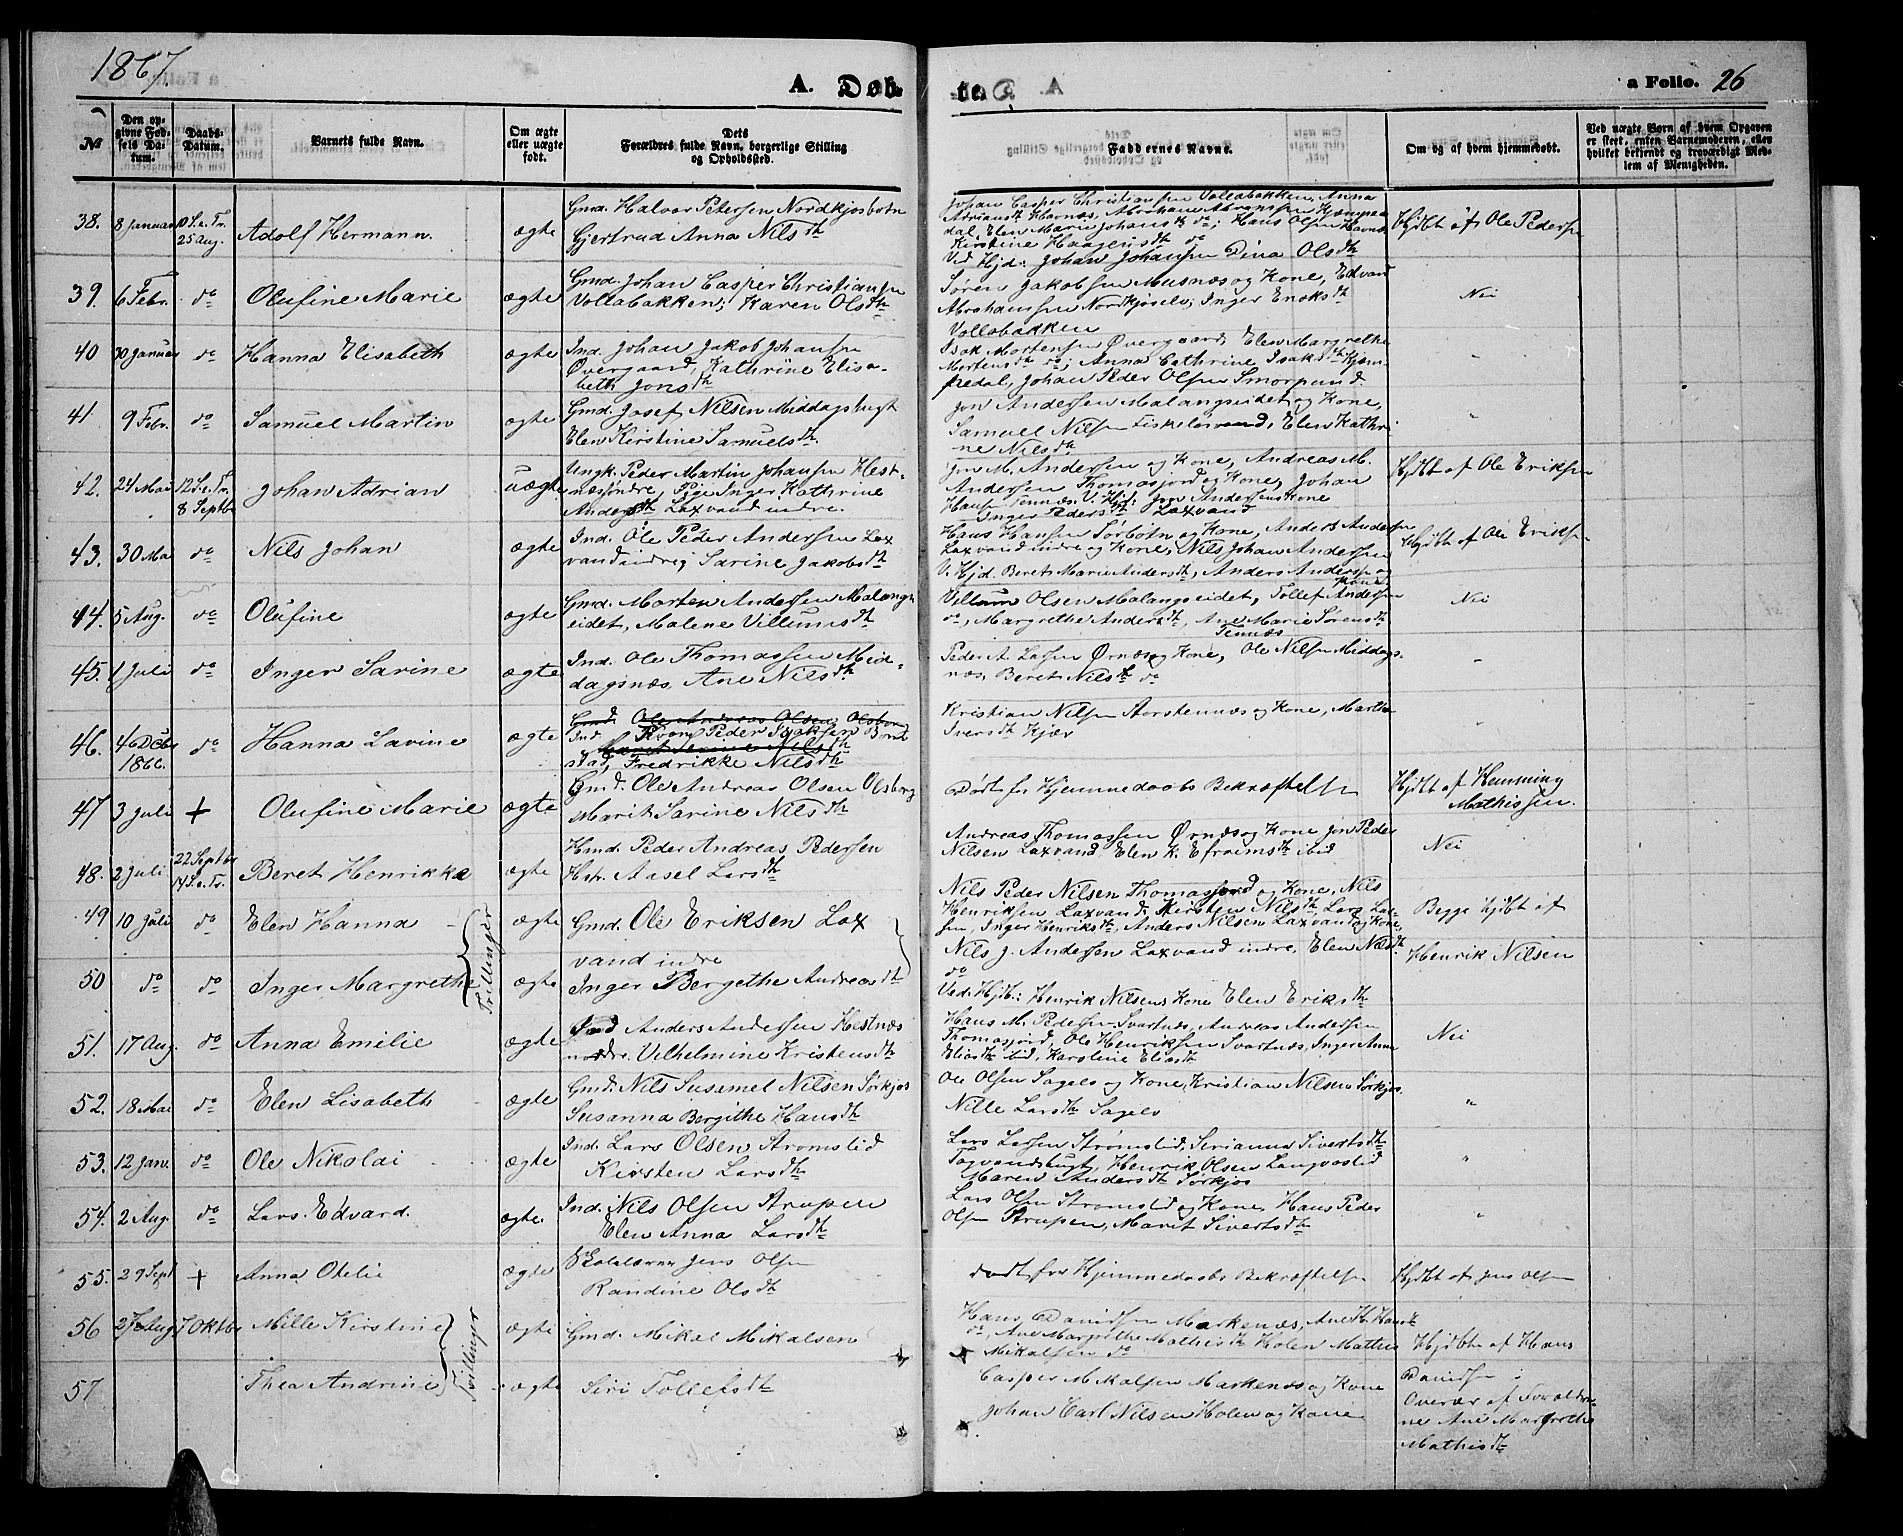 1867.
A. Døb-
te.
a Folio. 26
№
Den op-
givne Fød-
sels Da-
tum.
Daabs-
Datum.
Barnets fulde Navn.
Om ægte
eller uægte
født.
Dets
Forældres fulde Navn, borgerlige Stilling
og Opholdssted.
Faddernes Navne.
Om og af hvem hjemmedøbt.
Ved uægte Børn af hvem Opgaven
er skeet, enten Barnemoderen, eller
hvilket bekjendt og troværdigt Med-
lem af Menigheden.
38. 8 Januar 10 S. e. Tr.
25 Aug. Adolf Hermann. ægte
Gmd. Halvor Petersen Nordkjosbotn
Gjertrud Anna Nilsdth
Johan Casper Christiansen Vollabakken, Anna
Adriansdt Havnæs, Abraham Abramsen Kempe-
dal, Elen Marie Johansdt do, Hans Olsen Havnæs
Kirstine Haagensdth do
Ved Hjd: Johan Johansen Dina Olsdth
Hjdbt af Ole Pedersen
39. 6 Febr. do Olufine Marie ægte
Gmd. Johan Casper Christiansen
Vollabakken; Karen Olsdth
Søren Jakobsen Musnæs og Kone, Edvard
Abrahamsen Nordkjoselv; Inger Enoksdth
Vollabakken
Nei
40 30 Januar do Hanna Elisabeth ægte
Ind. Johan Jakob Johansen
Øvergaard, Kathrine Elisa-
beth Jonsdth
Isak Mortensen Øvergaard, Elen Margrethe
Mortensdth do; Anna Cathrine Isaksdth Kjem-
pedal, Johan Peder Olsen Smørpund
"
41 9 Febr. do Samuel Martin ægte
Gmd. Josef Nilsen Middagsbugt
Elen Kirstine Samuelsdth
Jon Andersen Malangseidet og Kone,
Samuel Nilsen Fiskeløsvand, Elen Kathri-
ne Nilsdth
"
42. 24 Mai 12 S. e. Tr.
8 Septbr Johan Adrian uægte
Ungk. Peder Martin Johansen Hest-
næs søndre, Pige Inger Kathrine
Andersdth Laxvand indre.
Jon M. Andersen og Kone, Andreas M.
Andersen Thomasjord og Kone, Johan
Hansen Tennæs. V. Hjd: Jon Andersens Kone
Inger Pedersdth Laxvand
Hjdbt af Ole Eriksen
43. 30 Mai do Nils Johan ægte
Ind. Ole Peder Andersen Lax
vand indre; Sarine Jakobsdth
Hans Hansen Sørbotn og Kone, Anders Andersen
Laxvand indre og Kone, Nils Johan Andersen
V. Hjd. Beret Marie Andersdth, Anders Andersen og
Kone
Hjdbt af Ole Eriksen
44. 5 Aug. do Olufine ægte
Gmd. Morten Andersen Malangs
eidet, Malene Villumsdth
Villum Olsen Malangseidet, Tollef Andersen
do, Margrethe Andersdth, Ane Marie Sørensdth
Tennæs
Nei
45. 1 Juli do Inger Sarine ægte
Ind. Ole Thomassen Mid-
dagsnæs, Ane Nilsdth
Peder A. Larsen Ørnæs og Kone, Ole Nilsen Middags-
næs, Beret Nilsdth do
"
46. 4 Decbr
1866. do Hanna Lavine ægte
Gmd. Ole Andreas Olsen Olsborg
Ind. Peder Isaksen
Marit Sarine Nilsdth
stad, Fredrikke Nilsdth
Kristian Nilsen Aarstennæs og Kone, Martha
Iversdth Kjær
47 3 Juli + Olufine Marie ægte
Gmd. Ole Andreas Olsen Olsborg
Marit Sarine Nilsdth
Død før Hjemmedaabs Bekræftelse
Hjdbt af Hemming
Mathissen.
48. 2 Juli 22 Septbr
14 S. e. Tr. Beret Henrikka ægte
Hmd. Peder Andreas Pedersen
Hstr. Aasel Larsdth
Andreas Thomassen Ørnæs og Kone, Jon Peder
Nilsen Laxvand, Elen K. Efraimsdth ibid
Nei
49 10 Juli do Elen Hanna
Tvillinger
ægte
Gmd. Ole Eriksen Lax
vand indre
Nils Peder Nilsen Thomasjord og Kone, Nils
Henriksen Laxvand, Kirsten Nilsdth, Lars Lar-
sen, Inger Henriksdth, Anders Nilsen Laxvand og Kone,
Begge hjdbt af
50 do do Inger Margrethe ægte
Inger Bergethe Andreasdth
Nils J. Andersen Laxvand indre, Elen Nilsdth
do
Ved Hjdb: Henrik Nilsens Kone Elen Eriksdth
Henrik Nilsen
51. 17 Aug. do Anna Emilie ægte
Ind Anders Andersen Hestnæs
nordre. Vilhelmine Kristensdth
Hans M. Pedersen Svartnæs, Andreas Andersen
Thomasjord, Ole Henriksen Svartnæs, Inger Anna
Eliasdth ibid, Karoline Eliasdth
Nei
52. 18 Mai do Elen Lisabeth ægte
Gmd. Nils Susamel Nilsen Sørkjos
Susanna Bergithe Hansdth
Ole Olsen Sagelv og Kone, Kristian Nilsen Sørkjos.
Nille Larsdth Sagelv
"
53. 12 Janr. do Ole Nikolai ægte
Ind. Lars Olsen Strømslid
Kirsten Larsdth
Lars Larsen Strømslid, Serianna Sivertsdth
Tagvandsbugt, Henrik Olsen Langvaslid
Maren Andersdth Sørkjos
"
54. 2 Aug. do Lars Edvard. ægte.
Ind. Nils Olsen Strupen
Elen Anna Larsdth
Lars Olsen Strømslid og Kone, Hans Peder
Olsen Strupen, Marit Sivertsdth
"
55. 29 Sept + Anna Otelie ægte
Skolelærer Jens Olsen
Randine Olsdth
død før Hjemmedaabs Bekræftelse
Hjdbt af Jens Olsen
56 27 Aug 7 Oktbr Mille Kirstine
Tvillinger
ægte
Gmd. Mikal Mikalsen
Hans Davidsen Markenæs, Ane H. Hansdt
do, Ane Margrethe Mathisdth Holen Mathis
Mikalsen do
Hjdbte af Hans
Davidsen
57 Thea Andrine ægte
Siri Tollefsdth
Casper Mikalsen Markenæs og Kone
Johan Carl Nilsen Holen og Kone
Overvær af Forældre-
ne Ane Margrethe
Mathisdth